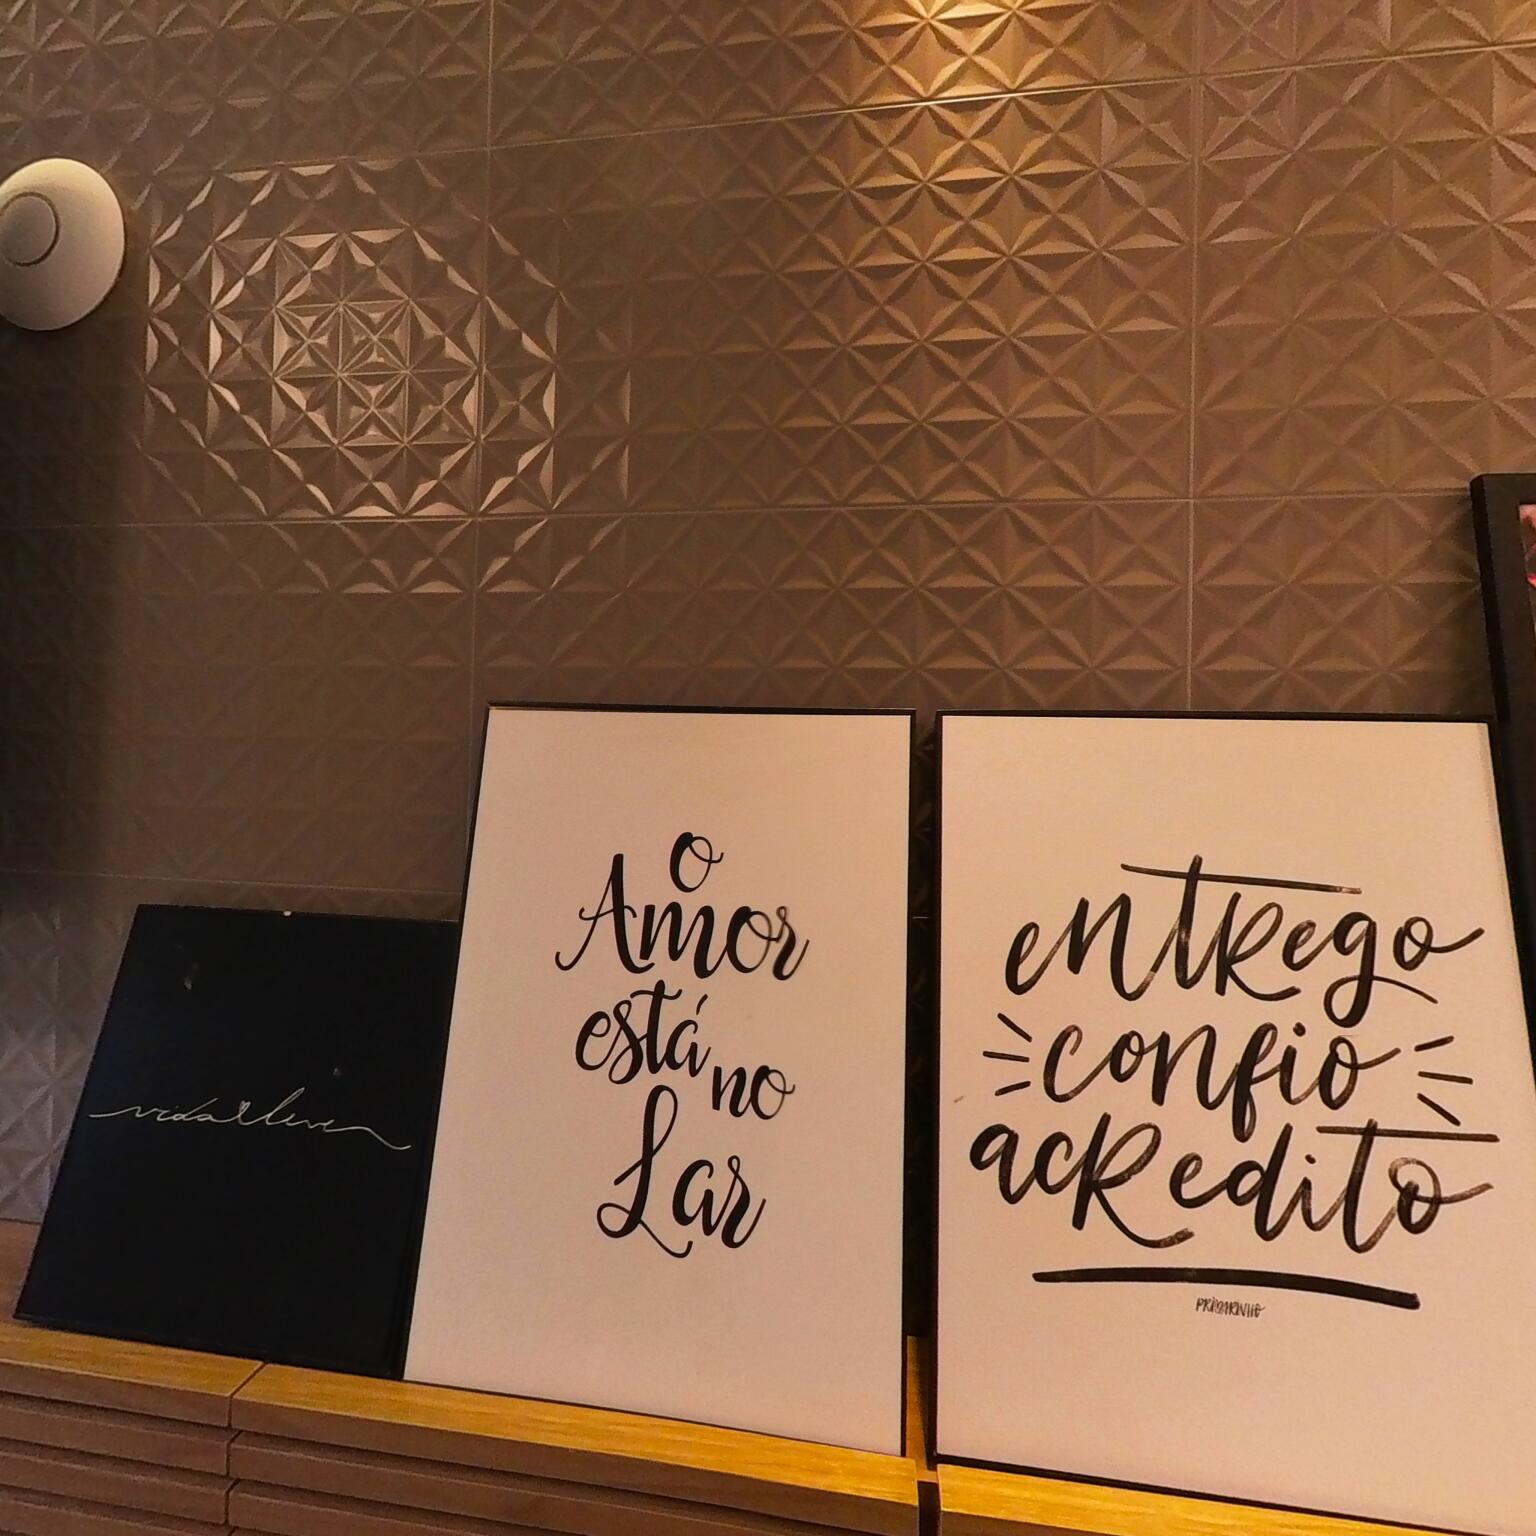 vida leve
o
Amor
está no
Lar
entrego
confio
acredito